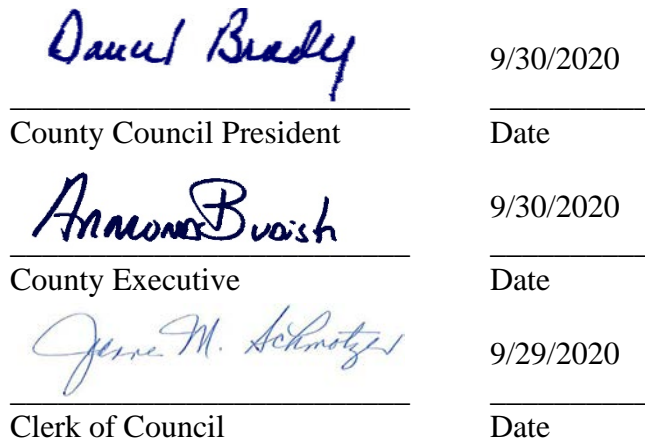 Daniel Brady 9/30/2020
County Council President Date
Armond Budish 9/30/2020
County Executive Date
Jeanne M. Schmotzer 9/29/2020
Clerk of Council Date